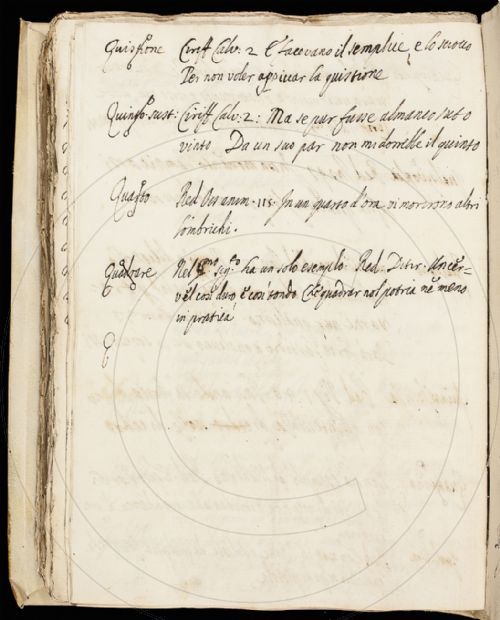 Quistione Ciriff Calv: 2 E taceuano il semplice, e lo scorto
Per non voler appiccar la quistione
Quinto. sust: Ciriff Calv: 2: Ma se pur fusse almanco suto
vinto, Da un suo par non mi dorrebbe il quinto
Quarto Red. Oss. anim. 115. In un quarto d'ora vi morirono altri
lombrichi.
Nel qto sigto ha un solo esempio. Red. Ditir. Un cer=
vel così duro, e così tondo Che quadrar nol potria nè meno
in pratica